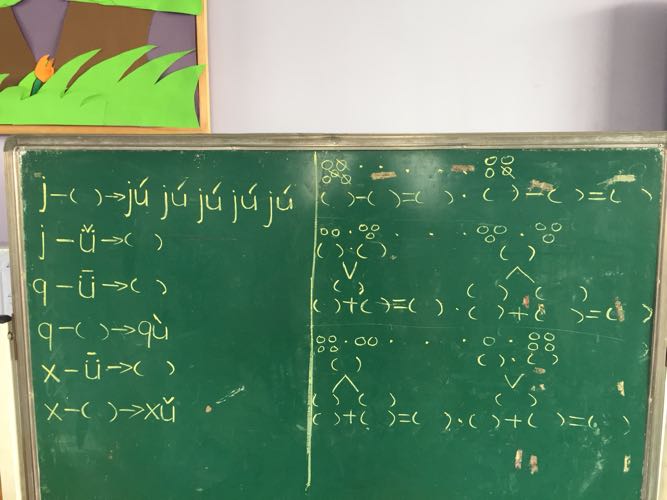 j-( )→jú jú jú jú jú
j-ǚ→( )
q-ǖ→( )
q-( )→qù
x-ǖ→( )
x-( )→xǔ
( )-( )=( ) · ( )-( )=( )
( ) · ( ) ( )
( ) ( ) ( )
( )+( )=( ) · ( )+( )=( )
( ) ( ) · ( )
( ) ( ) ( )
( )+( )=( ) · ( )+( )=( )